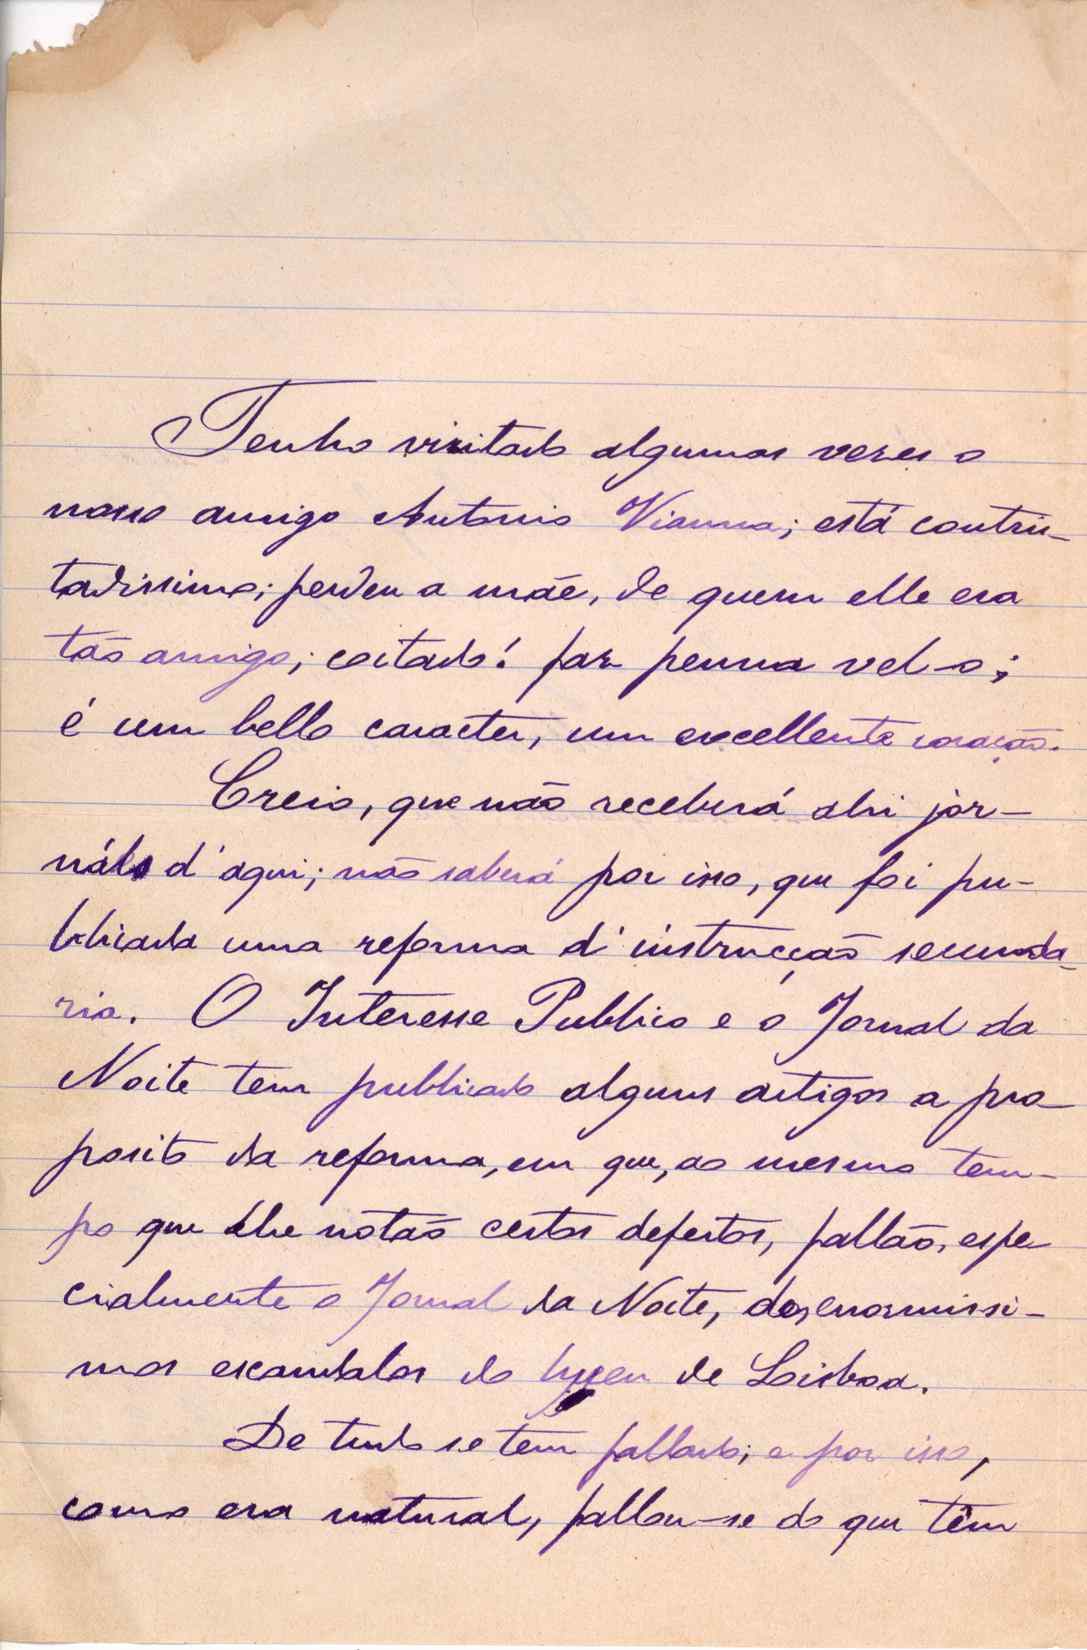 Tenho visitado algumas vezes o
nosso amigo Antonio Vianna; está contris-
tadissimo; perdeu a mãe, de quem elle era
tão amigo; coitado! faz penna vel-o;
é um bello caracter, um excellente coração.
Creio, que não receberá ahi jor-
náes d'aqui; não saberá por isso, que foi pu-
blicada uma reforma d'instrucção secunda-
ria. O Interesse Publico e o Jornal da
Noite tem publicado alguns artigos a pro-
posito da reforma, em que, ao mesmo tem-
po que lhe notão certos defeitos, fallão, espe
cialmente o Jornal da Noite, dos enormissi-
mos escandalos do lyceu de Lisboa.
De tudo se tem fallado; e por isso,
como era natural, fallou-se do que têm